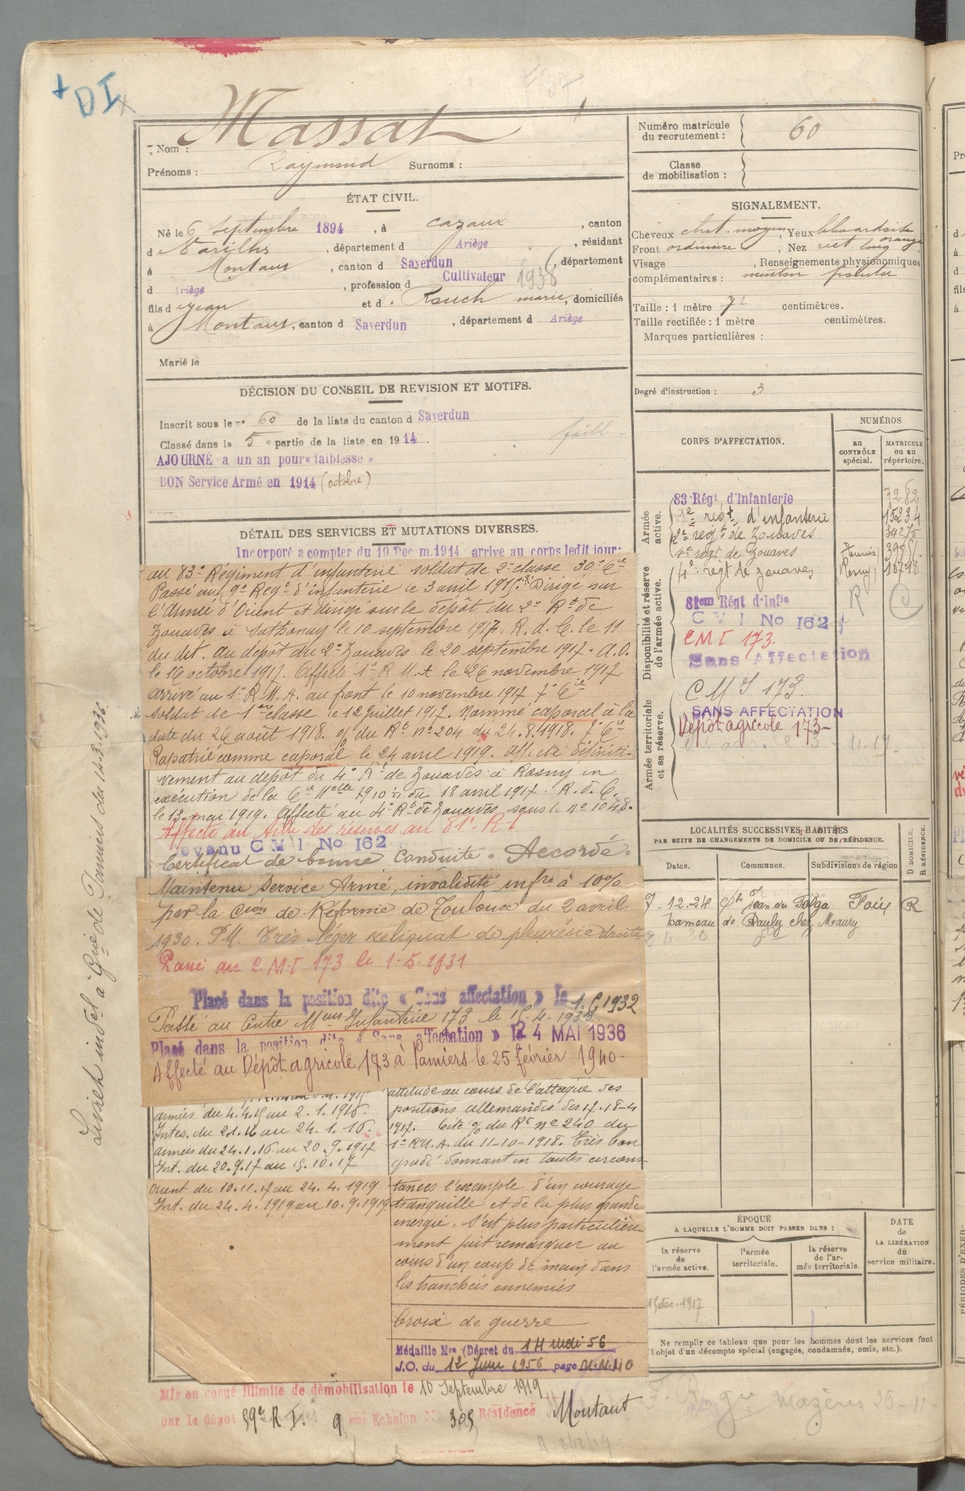 + DI
Massat
Nom :
Prénoms : Raymond Surnoms :
Numéro matricule du recrutement : 60
Classe de mobilisation :
ÉTAT CIVIL.
Né le 6 Septembre 1894, à Cazaux, canton
d Varilhes, département d Ariège, résidant
à Montaut, canton d Saverdun, département
d Ariège, profession d Cultivateur 1938
fils d Jean et d Rouch marie, domiciliés
à Montaut, canton d Saverdun, département d Ariège
Marié le
SIGNALEMENT.
Cheveux chat. moyen, Yeux bleu ardoisé
orangé
Front ordinaire, Nez rect long
Visage , Renseignements physionomiques
complémentaires : menton
Taille : 1 mètre 72 centimètres.
Taille rectifiée : 1 mètre centimètres.
Marques particulières :
Degré d'instruction : 3
DÉCISION DU CONSEIL DE REVISION ET MOTIFS.
Inscrit sous le n° 60 de la liste du canton d Saverdun
Classé dans la 5e partie de la liste en 1914.
AJOURNÉ a un an pour « faiblesse »
BON Service Armé en 1914 (octobre)
DÉTAIL DES SERVICES ET MUTATIONS DIVERSES.
Incorporé a compter du 19 Dec m. 1914 arrive au corps ledit jour:
au 83e Régiment d'infanterie soldat de 2e classe 30e Cie
Passé au 9e Regt d'infanterie le 3 avril 1915. Dirigé sur
l'Armée d'Orient et dirigé sur le depot du 2e Rt de
Zouaves à Sathonay le 10 septembre 1917. R. d. C. le 11
du dit. au depot du 2e Zouaves le 20 septembre 1917. A.O.
le 16 octobre 1917. Affecté 1e R M A le 26 novembre 1917
arrivé au 1e R. M. A. au front le 10 novembre 1917 7e Cie
Soldat de 1ère classe le 12 juillet 1917. Nommé caporal à la
date du 26 août 1918. O/ du Rt n° 204 du 24.8.1918. 7e Cie
Rapatrié comme caporal le 24 avril 1919. Affecté définiti-
vement au depot du 4e Rt de Zouaves à Rosny en
exécution de la Cre Melle 7910 du 18 avril 1917. R. d. C.
le 13 mai 1919. Affecté au 4e Rt de Zouaves, sous le n° 10 48.
Affecté au des réserves au 81e R I
Devenu C M I No 162
Certificat de bonne Conduite « Accordé »
Maintenu Service Armé, invalidité infre à 10%
par la Cion de Réforme de Toulouse du 2 avril
1930. P.M. Très léger reliquat de pleurésie droite
Passé au C.M.I 173 le 1-5-1931
Placé dans la position dite « Sans affectation » le 1.6 1932
Passé au Centre Meur Infanterie 173 le 15-4-1938
Placé dans la position dite « Sans affectation » le 24 MAI 1936
Affecté au Dépôt agricole 173 à Pamiers le 25 février 1940-
armées du 4.4.15 au 2.1.1916.
Intes. du 2.1.16 au 24.1.16.
armées du 24.1.16 au 20.9.1917
Int. du 20.9.17 au 15.10.17
Orient du 10.11.17 au 24.4.1919
Int. du 24.4.1919 au 10.9.1919
attitude au cours de l'attaque des
positions allemandes des 17.18-4
1917. Cité O/ du Rt n° 240 du
1e R.M.A. du 11-10-1918. Très bon
gradé donnant en toutes circons
tances l'exemple d'un courage
tranquille et de la plus grande
énergie. S'est plus particulière
ment fait remarquer au
cours d'un coup de main dans
les tranchées ennemies
Croix de guerre
Médaille Mre (Décret du 14 mai 56
J.O. du 12 Juin 1956 page
Mis en congé illimité de démobilisation le 10 Septembre 1919
par le dépôt 59e R. I. 9 ème Echelon No 305 Résidence Montaut
CORPS D'AFFECTATION.
NUMÉROS
au CONTRÔLE spécial.
MATRICULE ou au répertoire.
Armée active.
83 Régt d'Infanterie 7262
9e regt d'infanterie 15234
2e regt de Zouaves 34275
4e regt de Zouaves
4e regt de zouaves Rosny 10748
Disponibilité et réserve de l'armée active.
81em Régt d'Infie R
C M I No 162
C M I 173.
Sans Affectation
Armée territoriale et sa réserve.
C M I 173.
SANS AFFECTATION
Dépôt agricole 173-
LOCALITÉS SUCCESSIVES HABITÉES
PAR SUITE DE CHANGEMENTS DE DOMICILE OU DE RÉSIDENCE.
Dates. Communes. Subdivisions de région
D DOMICILE. R RÉSIDENCE.
7-12-24 St Jean du Falga Foix R
hameau de Pauly chez Maury
ÉPOQUE
A LAQUELLE L'HOMME DOIT PASSER DANS :
la réserve de l'armée active.
l'armée territoriale.
la réserve de l'armée territoriale.
DATE de LA LIBÉRATION du service militaire.
15 dec. 1917
Ne remplir ce tableau que pour les hommes dont les services font
l'objet d'un décompte spécial (engagés, condamnés, omis, etc.).
Mazères 26-11-